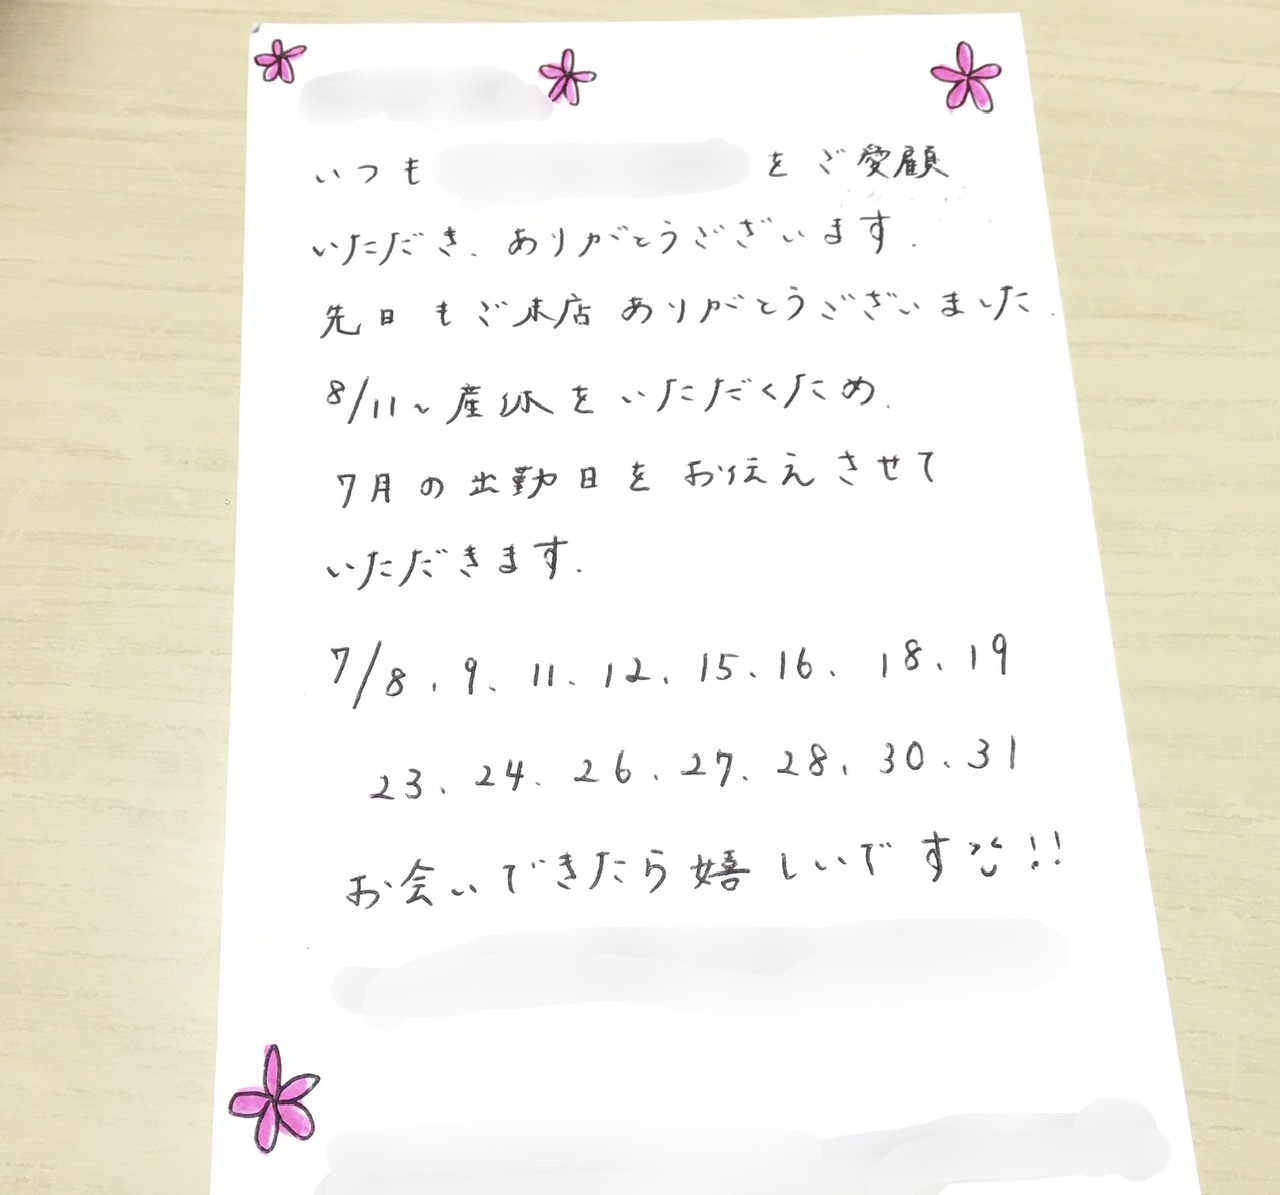 いつも をご愛顧
いただき、ありがとうございます.
先日もご来店ありがとうございました.
8/11~産休をいただくため、
7月の出勤日をお伝えさせて
いただきます.
7/8、9、11、12、15、16、18、19
23、24、26、27、28、30、31
お会いできたら嬉しいです!!